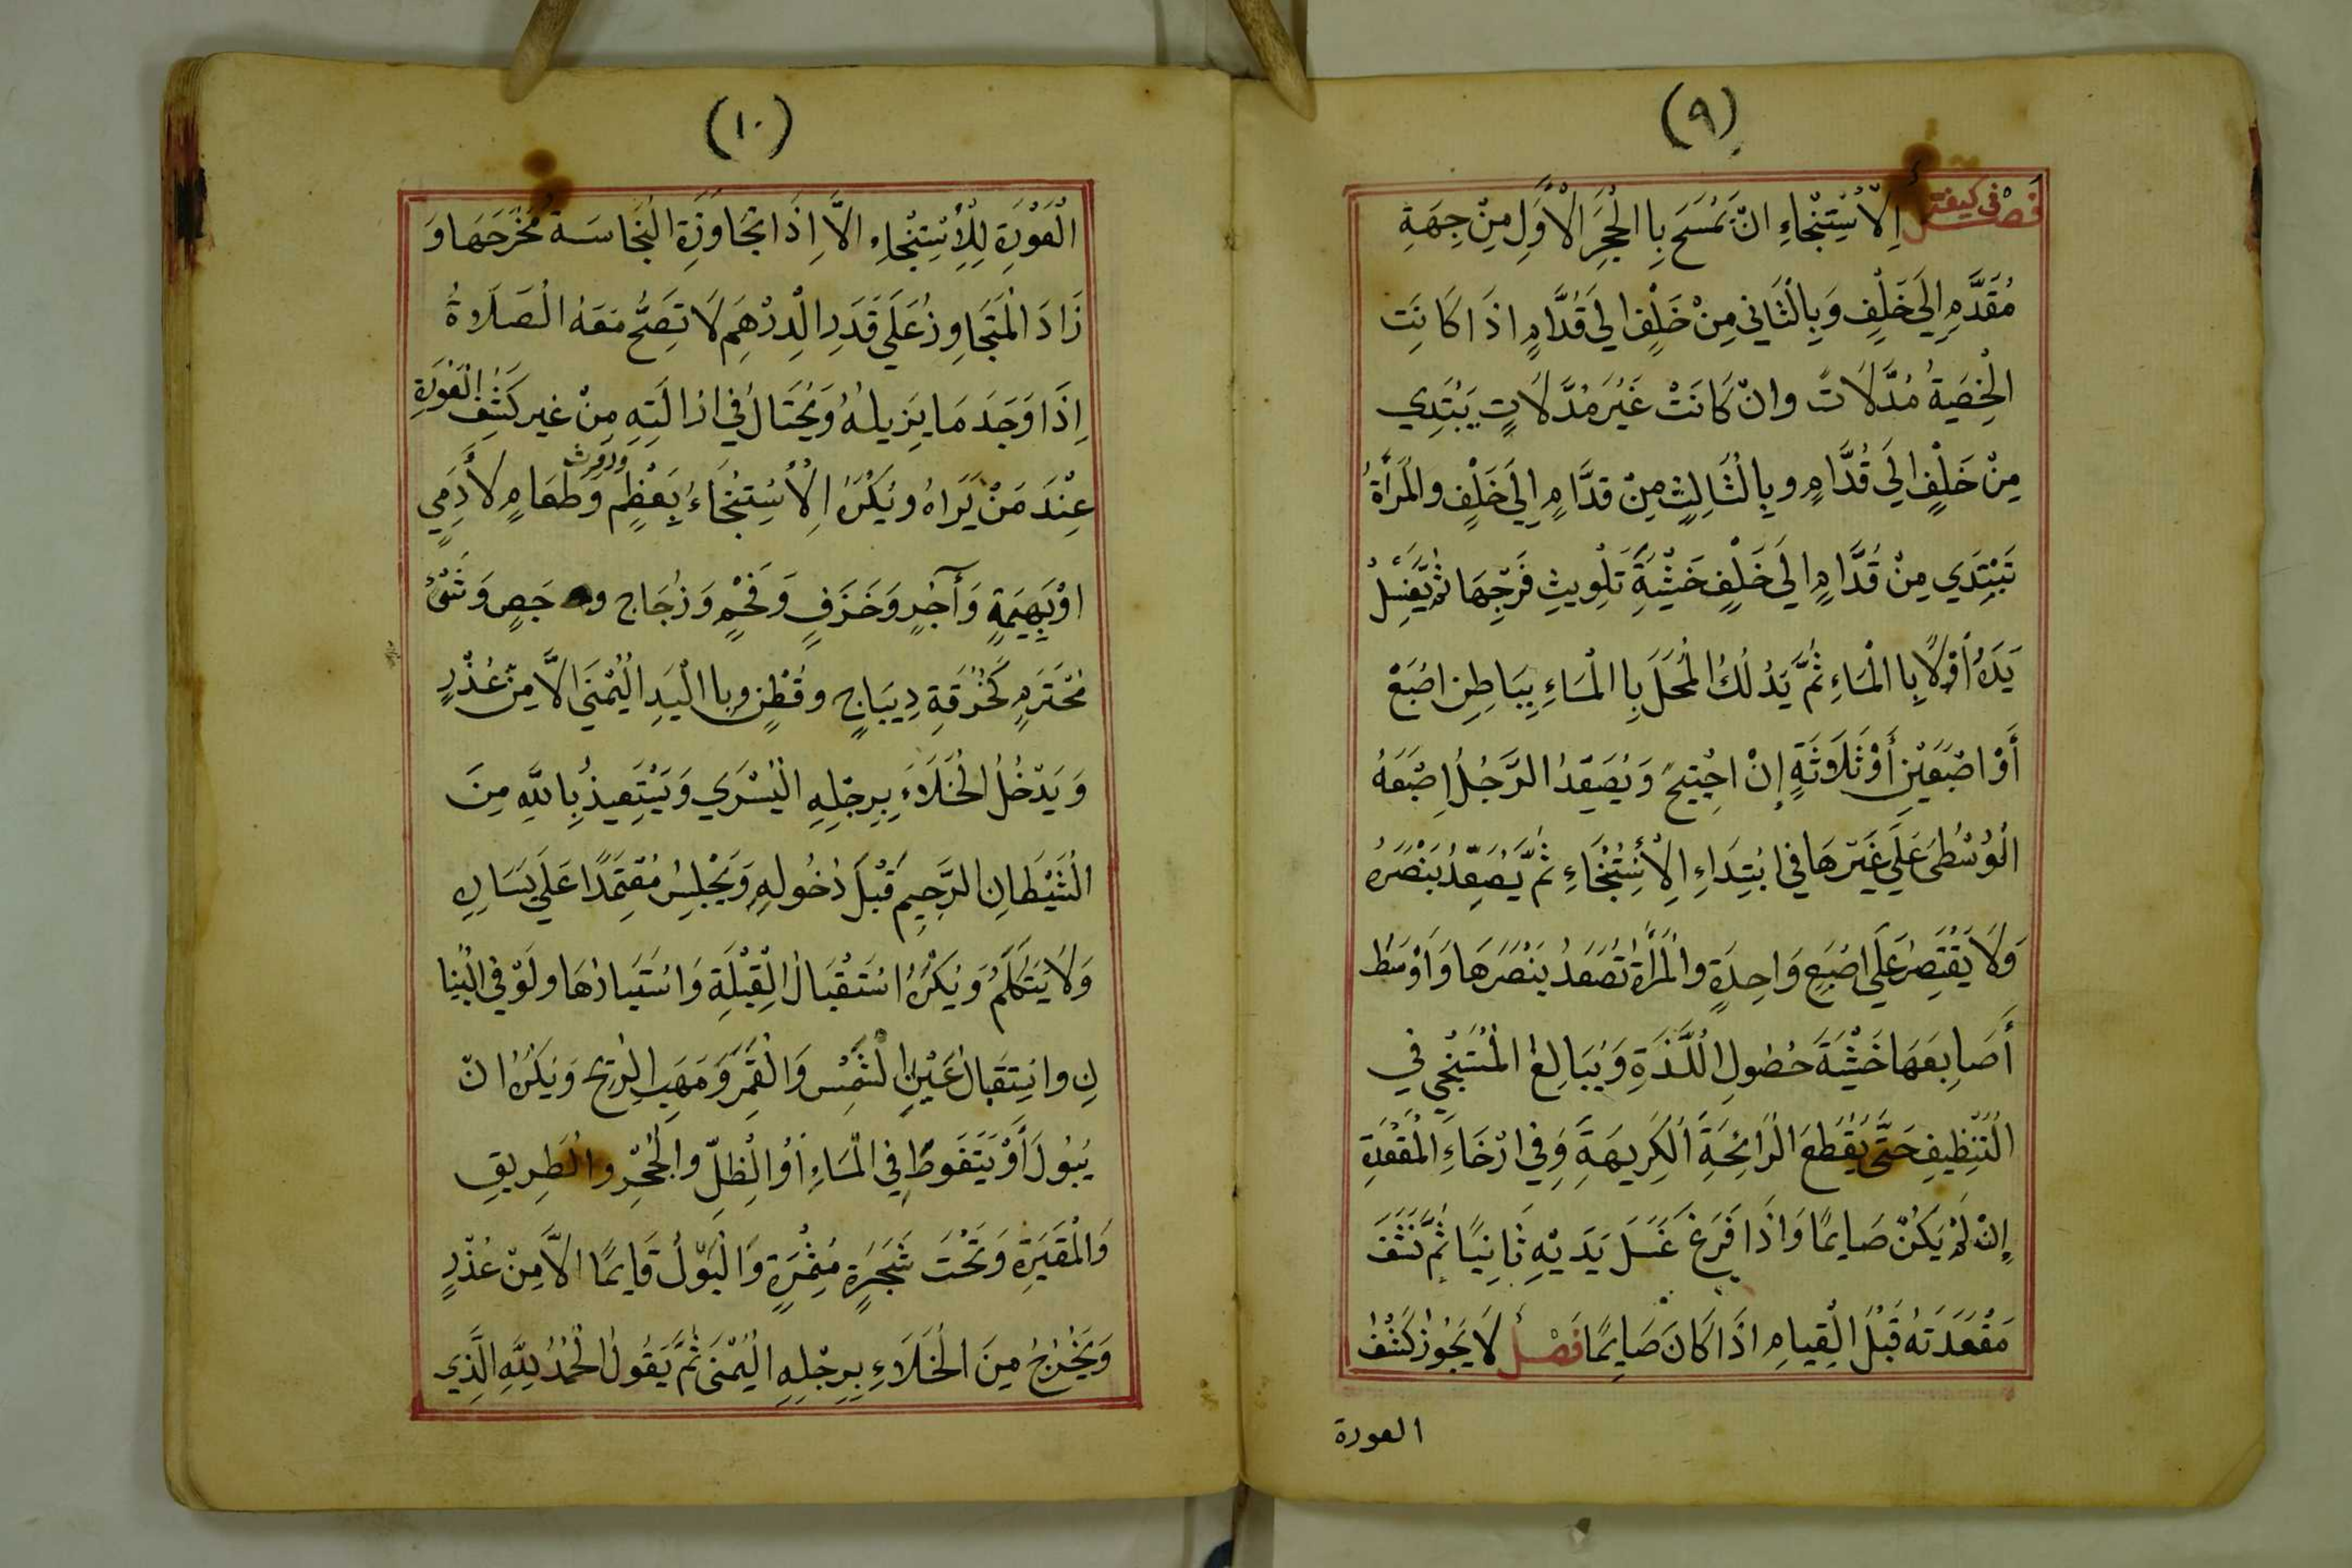 (٩)
فصل في كيفية الاستنجاء ان يمسح با الحجر الاول من جهة
مقدم الي خلف وبالثاني من خلف الي قدام اذا كانت
الخصية مدلات وان كانت غير مدلات يبتدي
من خلف الي قدام وبالثالث من قدام الي خلف والمرأة
تبتدي من قدام الي خلف خشية تلويث فرجها ثم يغسل
يده أولا با الماء ثم يدلك المحل با الماء بباطن اصبع
أو اصبعين أو ثلاوثة إن احتيج ويصعد الرجل إصبعه
الوسطى علي غيرها في ابتداء الاستنجاء ثم يصعد بنصره
ولا يقتصر علي اصبع واحدة والمرأة تصعد بنصرها واوسط
أصابعها خشية حصول اللذة ويبالغ المستنجي في
التنظيف حتى يقطع الرائحة الكريهة وفي ارخاء المقعدة
إن لم يكن صايما واذا فرغ غسل يديه ثانيا ثم نشف
مقعدته قبل القيام اذا كان صايما فصل لا يجوز كشف
العورة
(١٠)
العورة للاستنجاء الا اذا تجاوزة النجاسة مخرجها و
زاد المتجاوز علي قدر الدرهم لا تصح معه الصلاوة
اذا وجد ما يزيله ويحتال في ازالته من غير كشف العورة
عند من يراه ويكره الاستنجاء بعظم وروث وطعام لأدمي
او بهيمة وآجر وخزف وفحم وزجاج و جص وشئ
محترم كخرقة ديباج وقطن وبا اليد اليمنى الا من عذر
ويدخل الخلاء برجله اليسري ويستعيذ بالله من
الشيطان الرجيم قبل دخوله ويجلس معتمدا علي يساره
ولا يتكلم ويكره استقبال القبلة واستبادرها ولو في البنيا
ن واستقبال عين الشمس والقمر ومهب الريح ويكره ان
يبول أو يتغوط في الماء أو الظل والجحر والطريق
والمقبرة وتحت شجرة مثمرة والبول قايما الا من عذر
ويخرج من الخلاء برجله اليمنى ثم يقول الحمد لله الذي